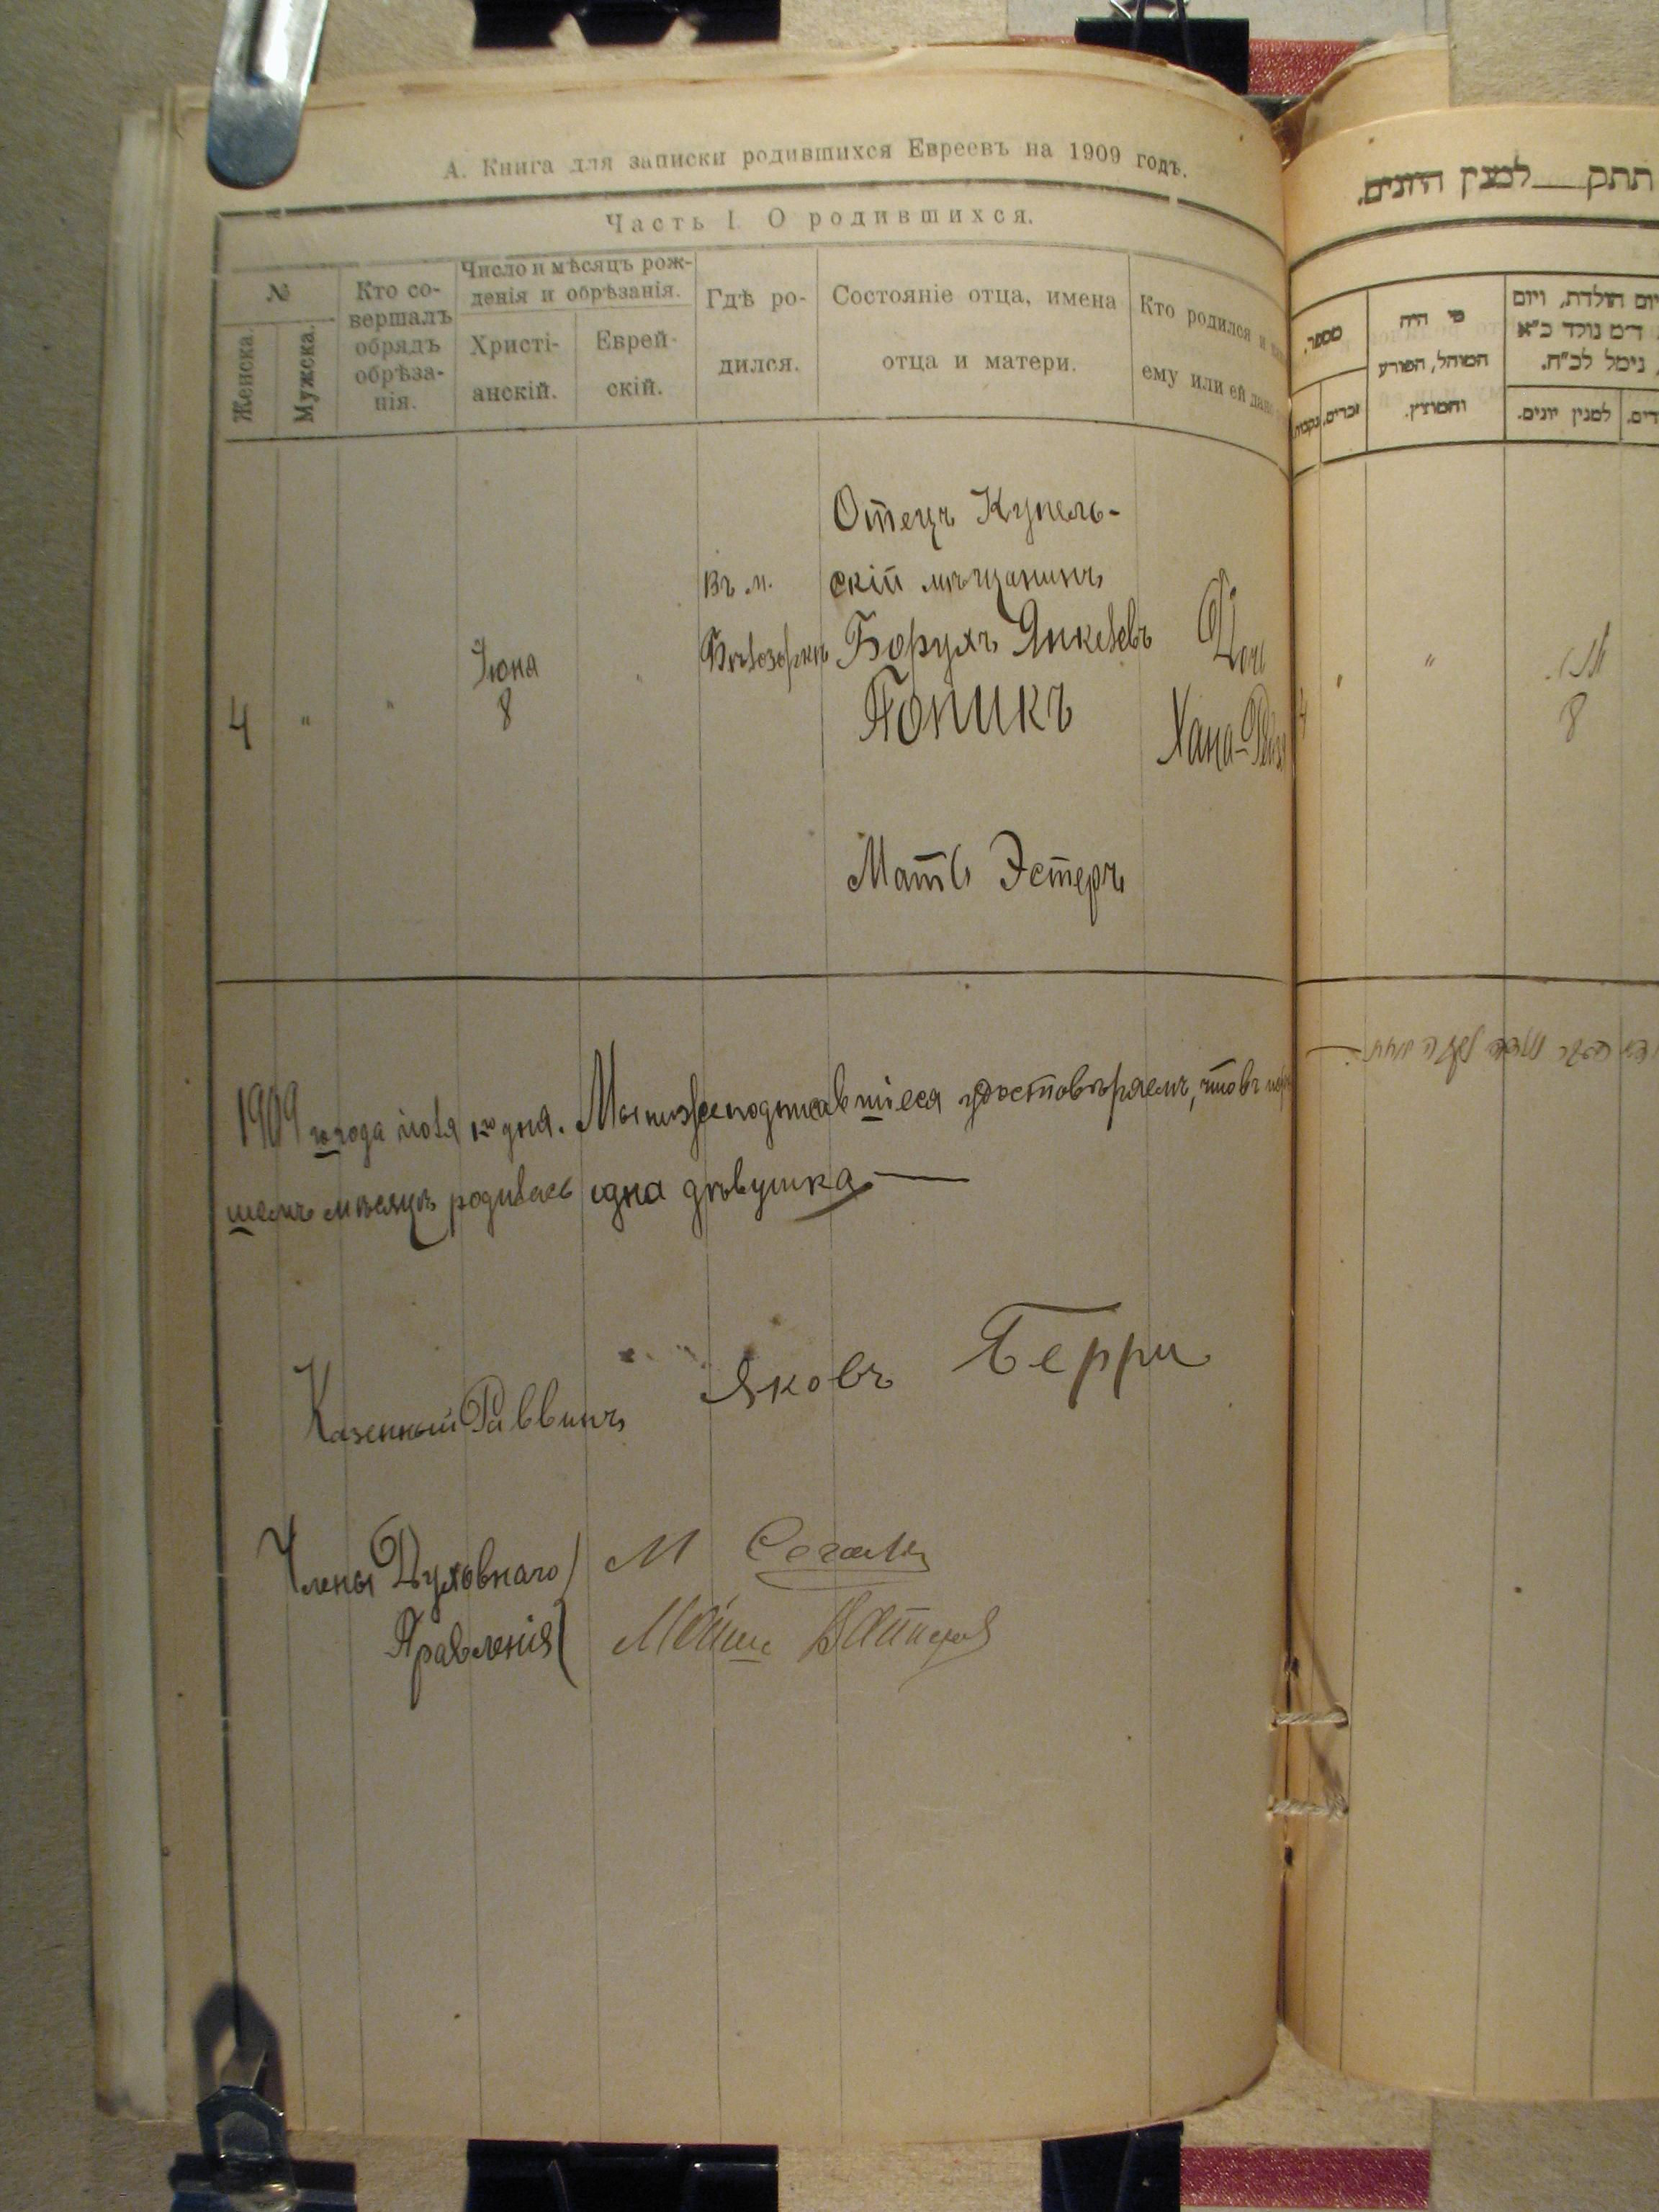 А. Книга для записки родившихся Евреевъ на 1909 годъ.
Часть I. О родившихся.
№
Женска.
Мужска.
Кто со-
вершалъ
обрядъ
обрѣза-
нія.
Число и мѣсяцъ рож-
денія и обрѣзанія.
Христі-
анскій.
Еврей-
скій.
Гдѣ ро-
дился.
Состояніе отца, имена
отца и матери.
Кто родился и
ему или ей дано
4
"
"
Іюна
8
Въ м.
Бѣлозоркѣ
Отецъ Купель-
скій мѣщанинъ
Борухъ Янкелевъ
Гопикъ
Мать Эстеръ
Дочь
Хана-
1909 года іюля 1го дня. Мы нижеподписавшіеся удостовѣряемъ, что въ
шемъ мѣсяцѣ родилась одна дѣвушка.
Казенный Раввинъ Яковъ Берри
Члены Духовнаго М Сегаль
Правленія
תתק למנין היונים.
מספר.
נקבות.
זכרים.
מי היה
המוהל, הפורע
והמוצץ.
יום הולדת, ויום
למנין יונים.
4
"
"
8